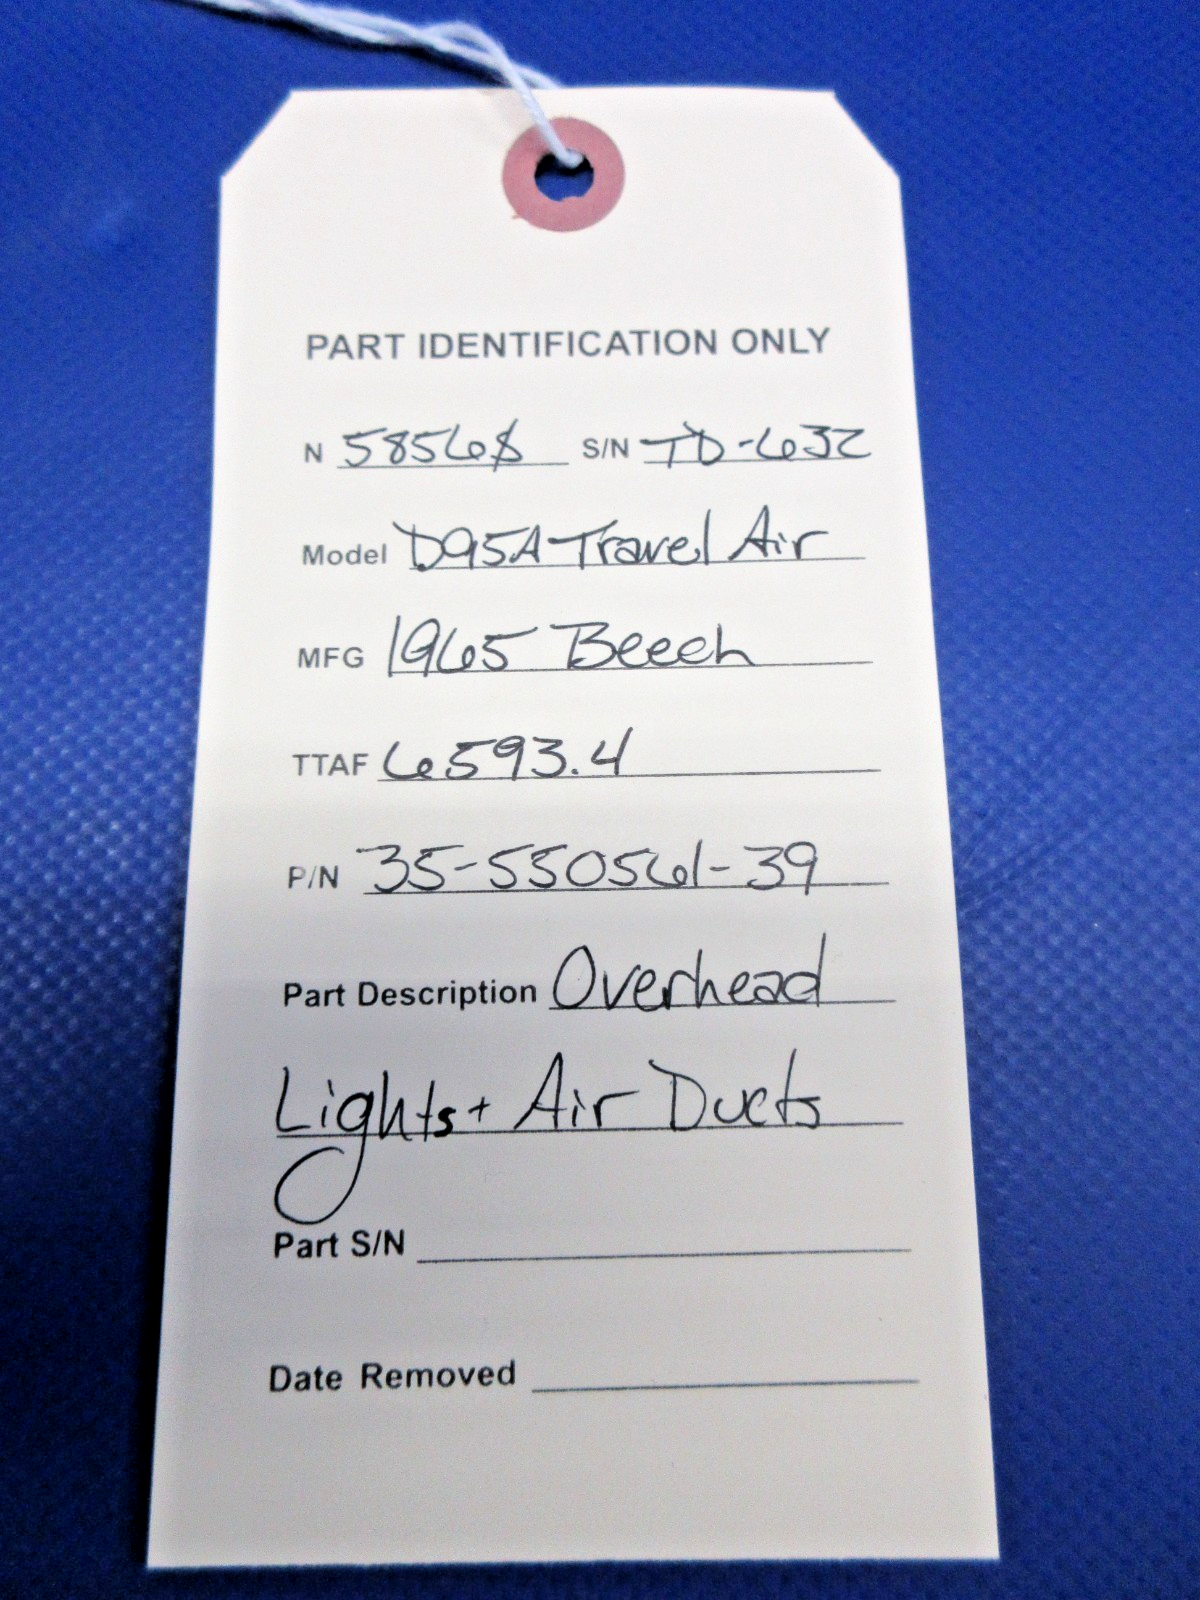 PART IDENTIFICATION ONLY
N 5856S S/N TD-632
Model D95A Travel Air
MFG 1965 Beech
TTAF 6593.4
P/N 35-550561-39
Part Description Overhead
Lights + Air Ducts
Part S/N
Date Removed